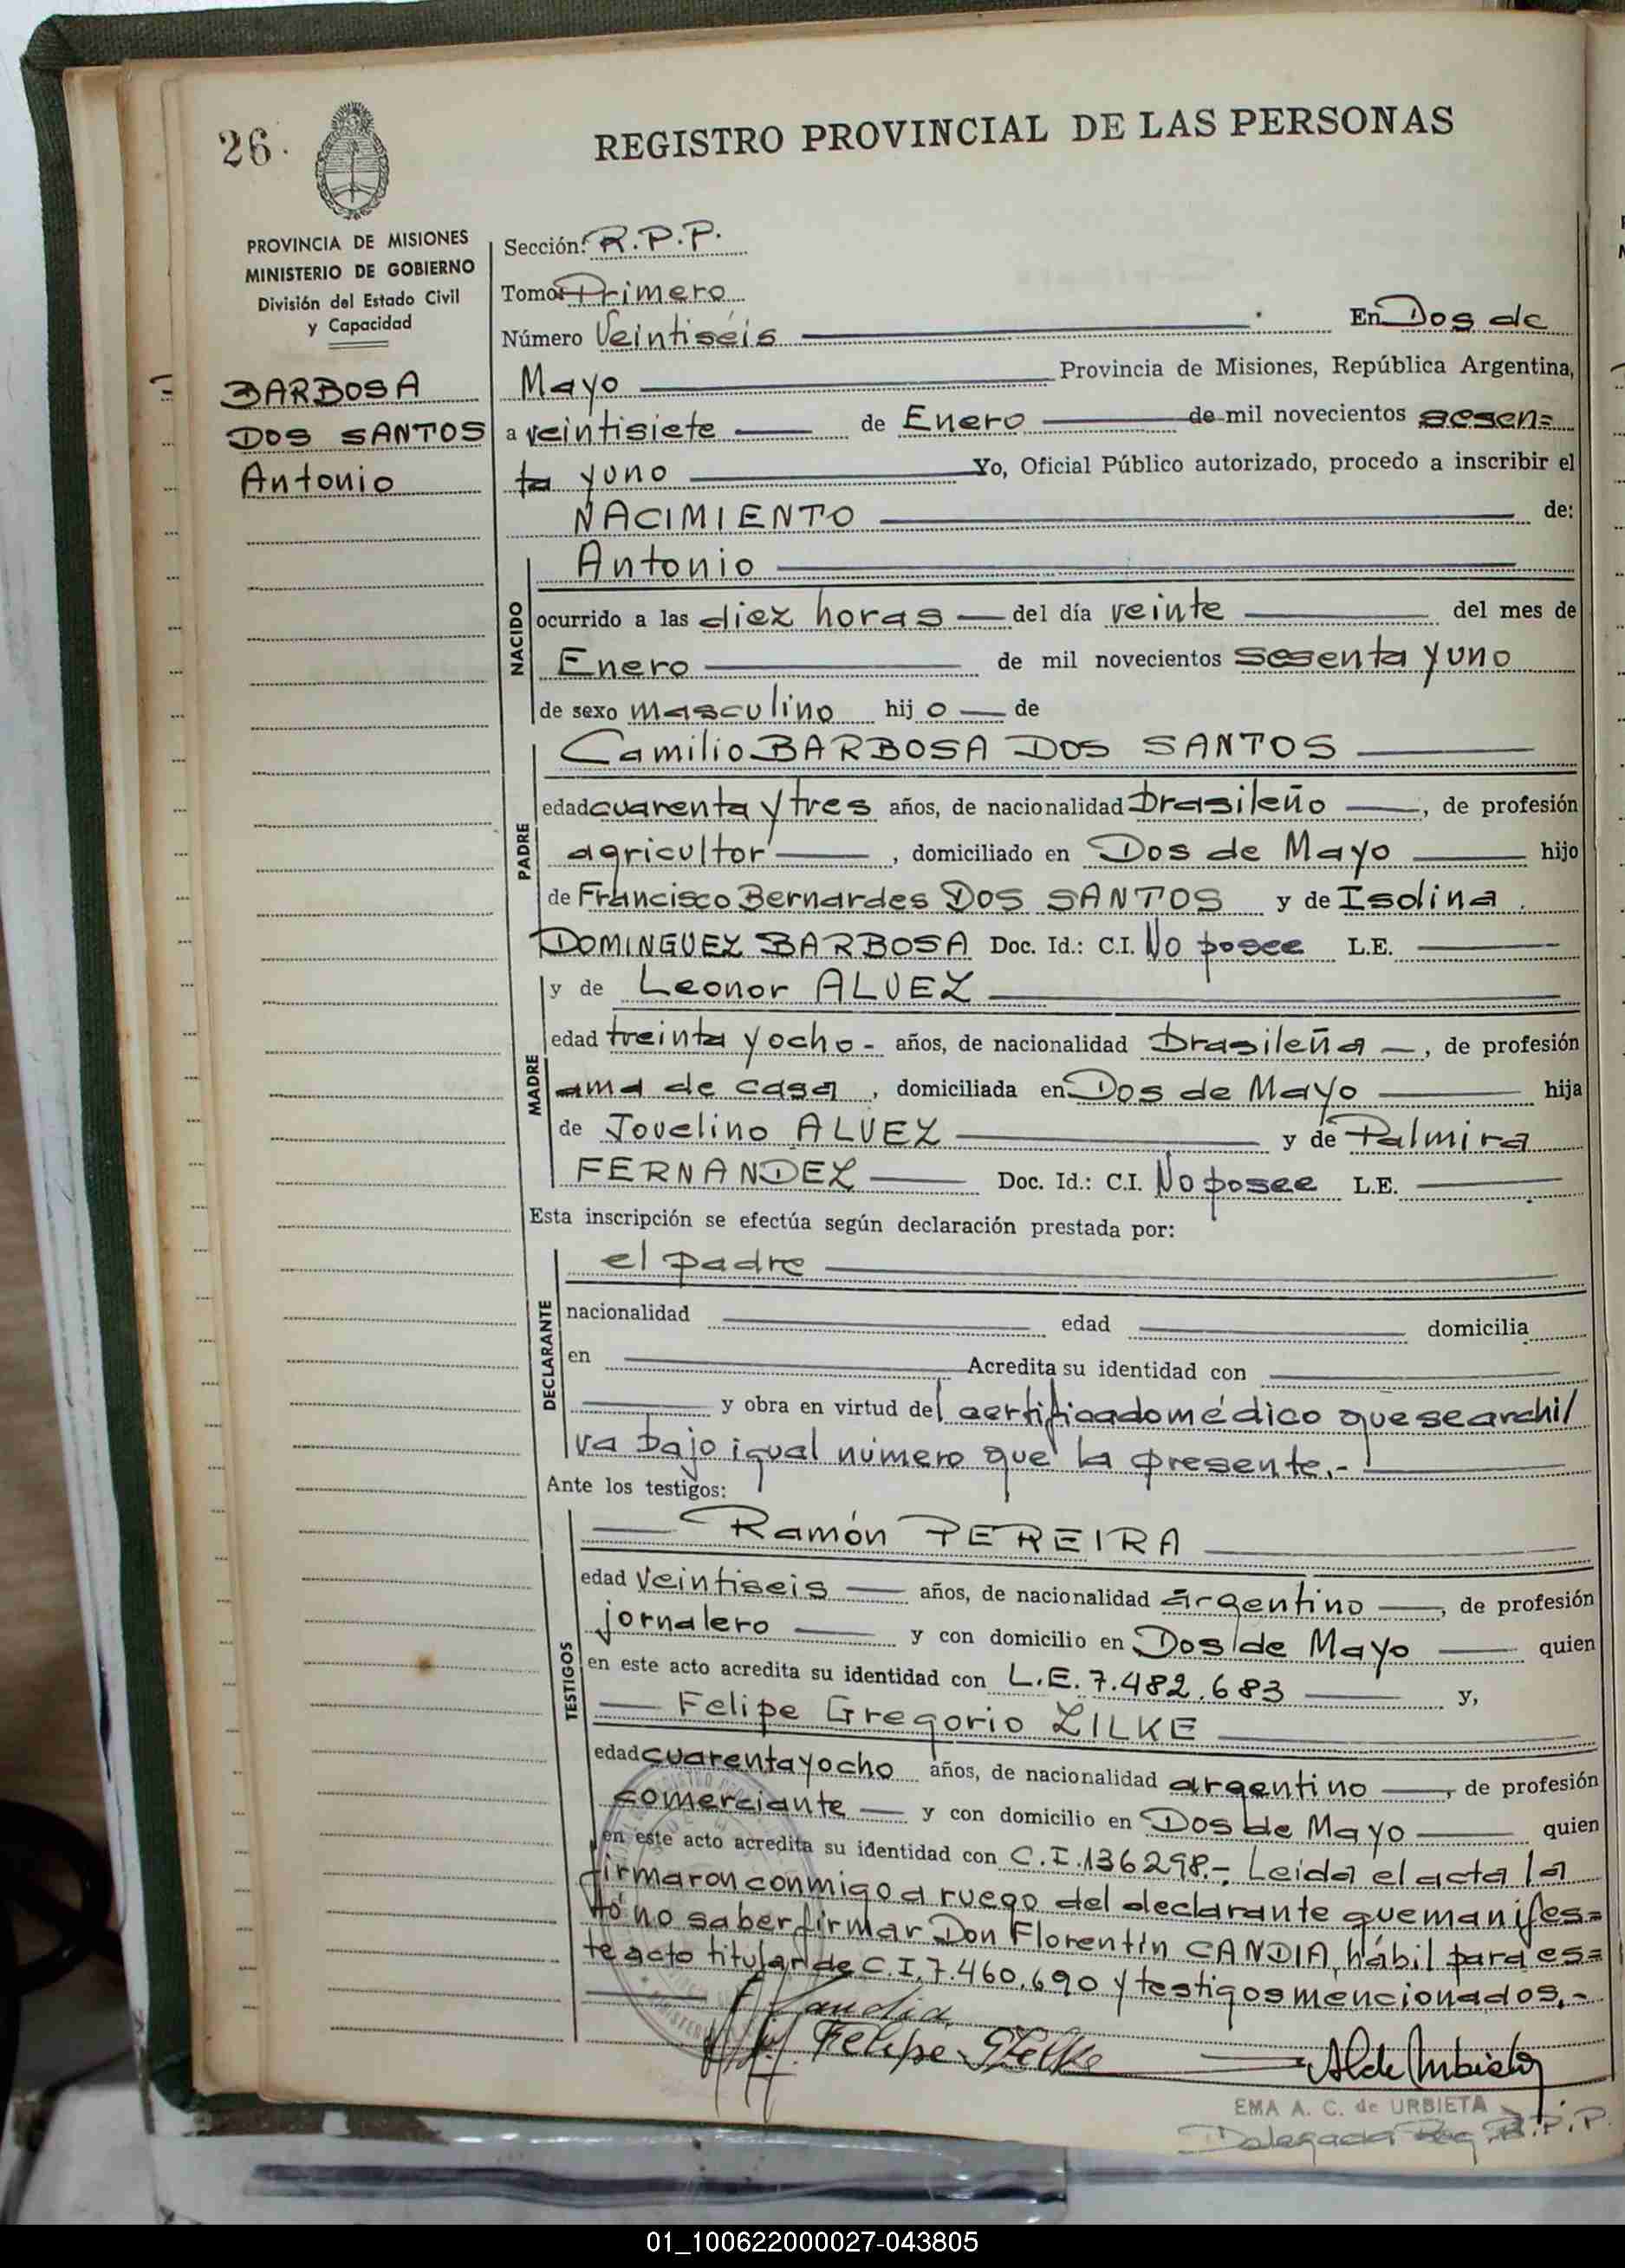 26.
REGISTRO PROVINCIAL DE LAS PERSONAS
PROVINCIA DE MISIONES
MINISTERIO DE GOBIERNO
División del Estado Civil
y Capacidad
BARBOSA
DOS SANTOS
Antonio
Sección: R.P.P.
Tomo: Primero
Número Veintiséis En Dos de
Mayo Provincia de Misiones, República Argentina,
a veintisiete de Enero de mil novecientos sesen=
ta y uno Yo, Oficial Público autorizado, procedo a inscribir el
NACIMIENTO de:
NACIDO
Antonio
ocurrido a las diez horas del día veinte del mes de
Enero de mil novecientos sesenta y uno
de sexo masculino hij o de
PADRE
Camilio BARBOSA DOS SANTOS
edad cuarenta y tres años, de nacionalidad brasileño, de profesión
agricultor, domiciliado en Dos de Mayo hijo
de Francisco Bernardes DOS SANTOS y de Isolina
DOMINGUEZ BARBOSA Doc. Id.: C.I. No posee L.E.
MADRE
y de Leonor ALVEZ
edad treinta y ocho - años, de nacionalidad brasileña, de profesión
ama de casa, domiciliada en Dos de Mayo hija
de Jovelino ALVEZ y de Palmira
FERNANDEZ Doc. Id.: C.I. No posee L.E.
Esta inscripción se efectúa según declaración prestada por:
DECLARANTE
el padre
nacionalidad edad domicilia
en Acredita su identidad con
y obra en virtud del certificado médico que se archi/
va bajo igual número que la presente.-
Ante los testigos:
TESTIGOS
Ramón PEREIRA
edad veintiseis años, de nacionalidad argentino, de profesión
jornalero y con domicilio en Dos de Mayo quien
en este acto acredita su identidad con L.E. 7.482.683 y,
Felipe Gregorio ZILKE
edad cuarenta y ocho años, de nacionalidad argentino, de profesión
comerciante y con domicilio en Dos de Mayo quien
en este acto acredita su identidad con C.I. 136298.-. Leida el acta la
firmaron conmigo a ruego del declarante que manifes=
tó no saber firmar Don Florentín CANDIA, hábil para es=
te acto titular de C.I. 7.460.690 y testigos mencionados.-
Candia
Felipe Zilke
EMA A. C. de URBIETA
Delegada Reg. R.P.P.
01_100622000027-043805